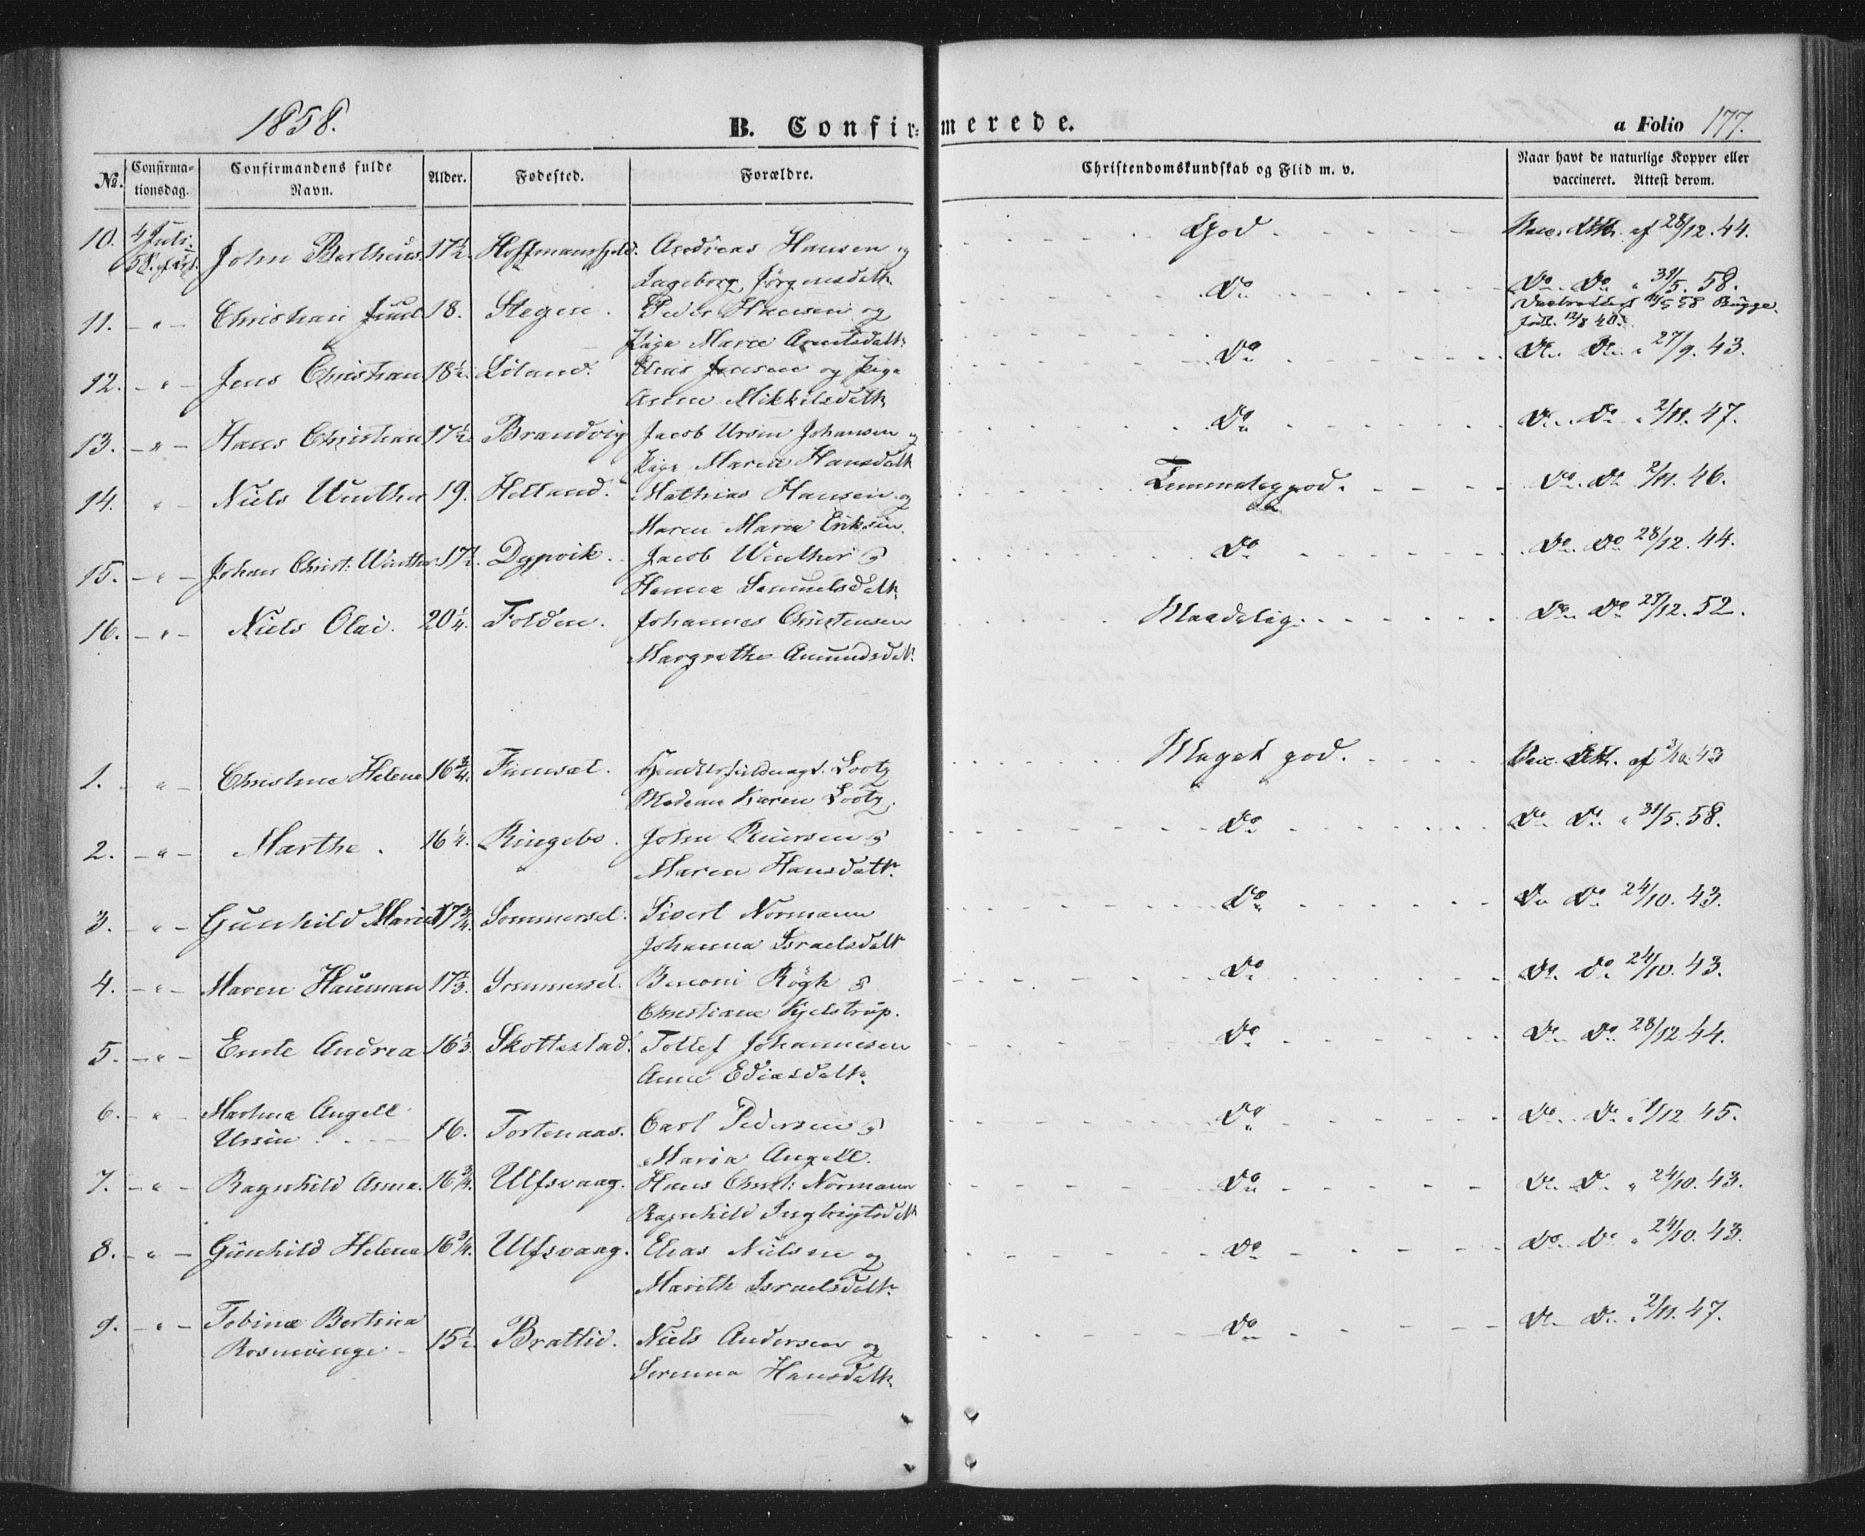 1858.
B. Confirmerede.
a Folio 177.
No. Confirmationsdag. Confirmandens fulde Navn. Alder. Fødested. Forældre. Christendomskundskab og Flid m. v. Naar havt de naturlige Kopper eller vaccineret. Attest derom.
10. 4 Juli 58. John Bertheus 17½. Andreas Hansen og God. Vacc. Att. af 28/12.44.
Ingeborg Jørgensdatt.
11. - " - Christian Juul 18. Stegen. Peder Hansen og Do Do Do " 31/5.58.
Pige Maren Arntsdatt.
12. - " - Jens Christian 18½. Liland. Elias Jensen og Pige Do Do Do " 27/9.43.
Anne Mikkelsdatt.
13. - " - Hans Christian 17½. Brandvig Jacob Ursin Johansen og Do Do Do " 2/11.47.
Pige Maren Hansdatt
14. " Niels Winther 19. Helland. Mathias Hansen og Temmelig god. Do Do 2/11.46.
Maren Maria Eriksen.
15. - " - Johan Christ: Winther 17½. Dypvik. Jacob Winther & Do Do Do 28/12.44.
Hanna Samuelsdatt.
16. - " - Niels Olai. 20¼. Folden. Johannes Christensen Maadelig. Do Do 28/12.52.
Margrethe Amundsdat.
1. " - Christine Helene 16¾. Finnsæt. Lootz Meget god. Vacc. Att. af 3/10.43
Madame Karen Lootz.
2. - " - Marthe. 16¼. Ringebo. John Reiersen & Do Do Do " 31/5.58.
Maren Hansdatt.
3. " - Gunhild Maria 17¾. Sommersel. Sivert Normann Do Do Do 24/10.43.
Johanna Israelsdatt
4. - " - Maren Hauman 17⅔. Sommersel. Benoni Røgh & Do Do Do 24/10.43.
Christiane Kjelstrup.
5. - " - Ente Andrea 16⅓. Skottestad. Tollef Johannesen Do Do Do 28/12.44.
Anne Ediasdatt.
6. - " - Martina Angell
Ursin. 16. Fortenaas. Carl Pedersen & Do Do Do 1/12.45.
Maria Angell.
7. - " - Ragnhild Anna. 16¾. Ulfsvaag. Hans Christ: Normann Do Do Do " 24/10.43.
Ragnhild Ingbrigtsdatt
8. - " - Gunhild Helena 16¾. Ulfsvaag. Elias Nielsen og Do Do Do " 24/10.43.
Marith Israelsdatt.
9. - " - Tobine Bertina
Rosenvinge 15½. Brattlid. Niels Andersen og Do Do Do " 2/11.47.
Serenna Hansdatt.